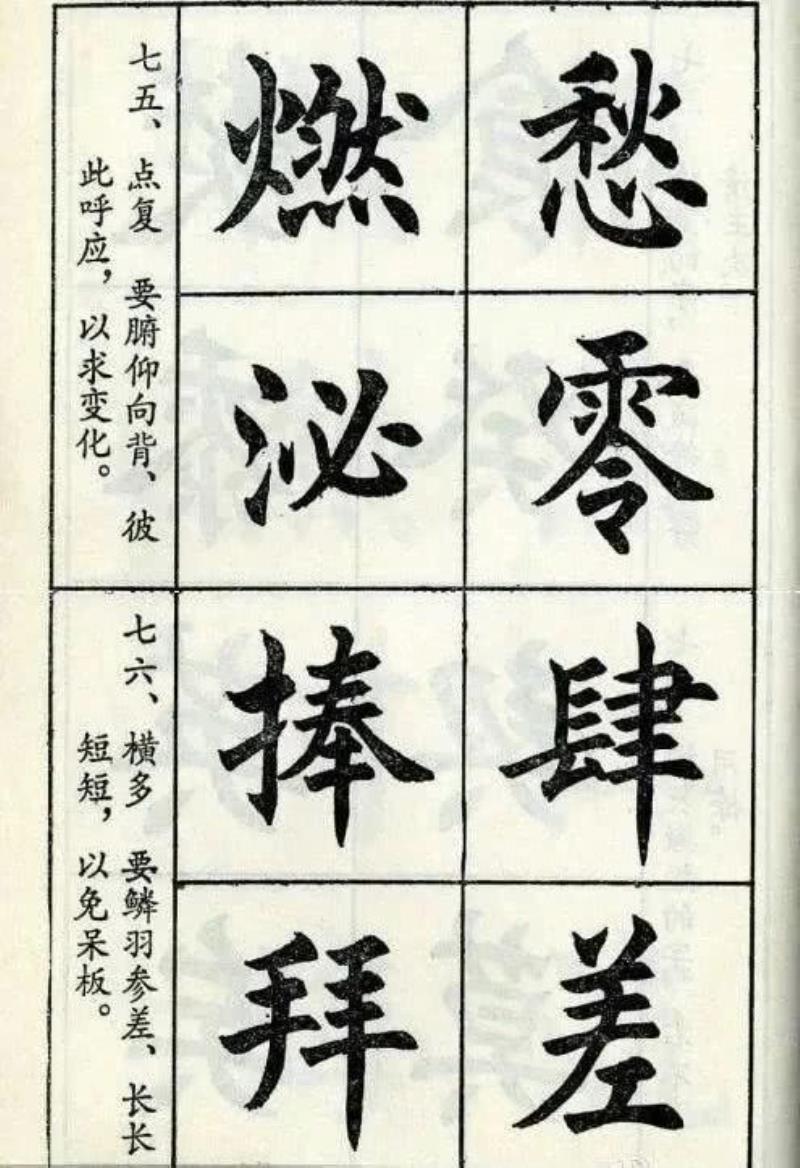 七五、点复　要腑仰向背、彼
此呼应，以求变化。
愁燃
零泌
七六、横多　要鳞羽参差、长长
短短，以免呆板。
肆捧
差拜